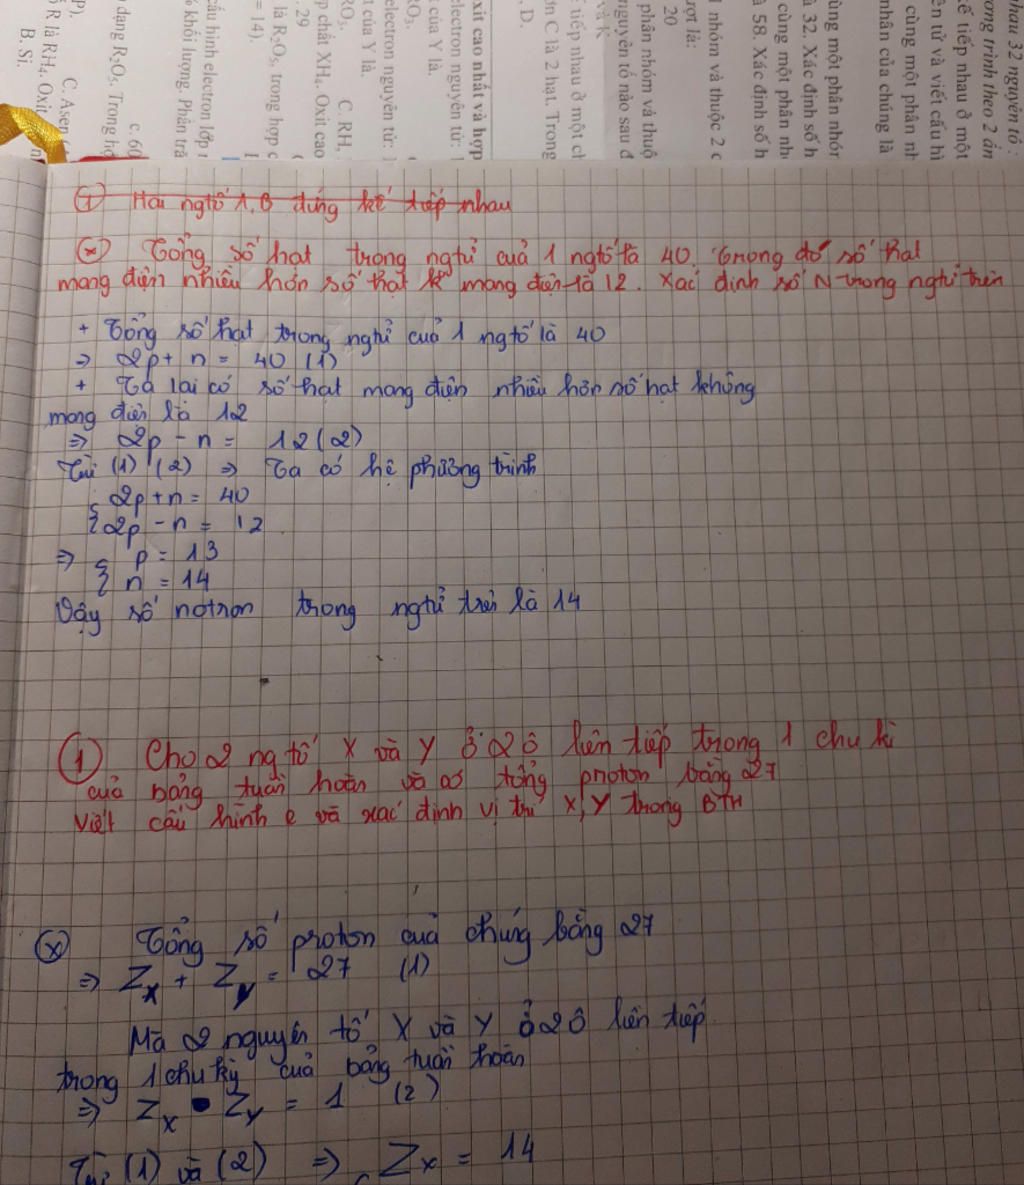 nhau 32 nguyên tố :
ương trình theo 2 ẩn
kế tiếp nhau ở một
ên tử và viết cấu hì
cùng một phân nh
nhân của chúng là
ùng một phân nhór
à 32. Xác định số h
cùng một phân nh
à 58. Xác định số h
1 nhóm và thuộc 2 c
rợt là:
20
phân nhóm và thuộ
nguyên tố nào sau đ
và K
tiếp nhau ở một ch
ơn C là 2 hạt. Trong
. D.
xit cao nhất và hợp
electron nguyên tử: 1
t của Y là.
RO3.
electron nguyên tử: 1
t của Y là.
RO3. C. RH.
p chất XH4. Oxit cao
. 29
là R2O5, trong hợp c
= 14).
cấu hình electron lớp
% khối lượng. Phân tră
c. 60
dạng R2O5. Trong hợ
P). C. Asen
R là RH4. Oxit
B. Si.
Hai ngtố A, B đứng kế tiếp nhau
(*) Tổng số hạt trong ngtử của 1 ngtố là 40. Trong đó số hạt
mang điện nhiều hơn số hạt k mang điện là 12. Xác định số N trong ngtử trên
+ Tổng số hạt trong ngtử của 1 ngtố là 40
⇒ 2p + n = 40 (1)
+ Ta lại có số hạt mang điện nhiều hơn số hạt không
mang điện là 12
⇒ 2p - n = 12 (2)
Từ (1) (2) ⇒ Ta có hệ phương trình
{ 2p + n = 40
{ 2p - n = 12
⇒ { p = 13
{ n = 14
Vậy số notron trong ngtử trên là 14
① Cho 2 ng tố X và Y ở 2 ô liên tiếp trong 1 chu kì
của bảng tuần hoàn và có tổng proton bằng 27
viết cấu hình e và xác định vị trí X, Y trong BTH
(x) Tổng số proton của chúng bằng 27
⇒ ZX + ZY = 27 (1)
Mà 2 nguyên tố X và Y ở 2 ô liên tiếp
trong 1 chu kỳ của bảng tuần hoàn
⇒ ZX - ZY = 1 (2)
Từ (1) và (2) ⇒ { ZX = 14